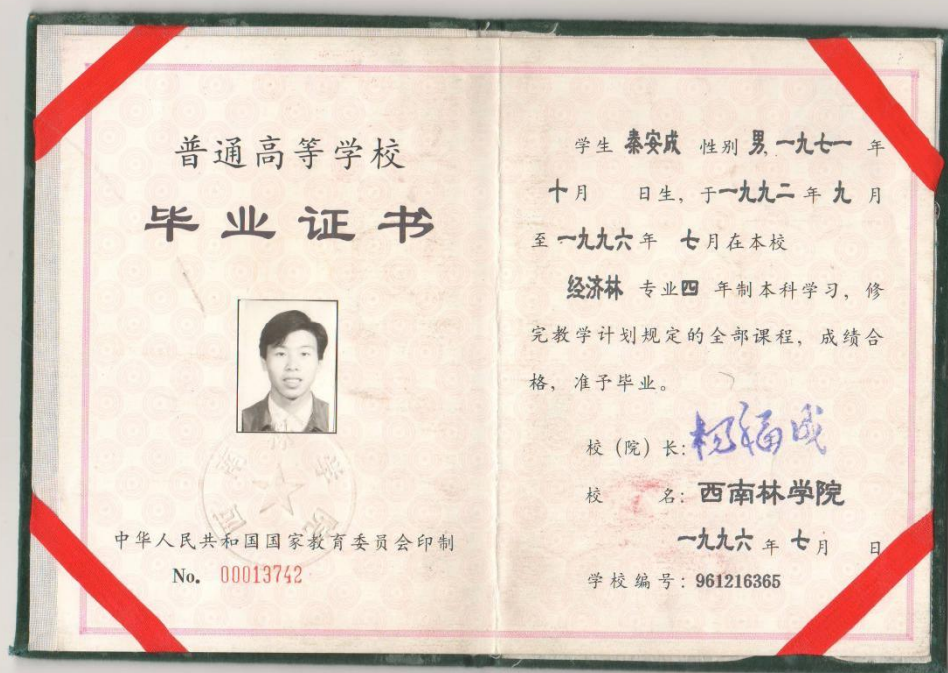 普通高等学校
毕业证书
中华人民共和国国家教育委员会印制
No. 00013742
学生 秦安成 性别 男, 一九七一 年
十月 日生, 于一九九二年 九 月
至一九九六年 七月在本校
经济林 专业四 年制本科学习, 修
完教学计划规定的全部课程, 成绩合
格, 准予毕业。
校(院)长: 杨福成
校 名: 西南林学院
一九九六 年 七月 日
学校编号: 961216365